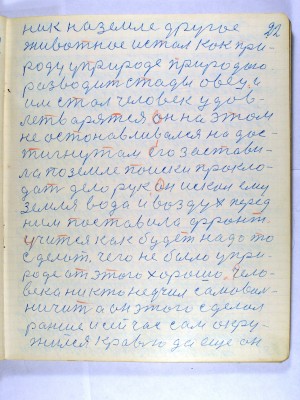 22
ник на земле другое
животное и стал как при-
роду у природе природою.
разводит стады овец, и
им стал человек удов-
летварятся он на этом
не останавливался на дос-
тигнутам его застави-
ла по земле поиски прокло-
дать дело рук. Он искал ему
земля вода и воздух перед
ним поставила фронт.
учится как будет надо то
сделат, чего не было у при-
роде от этого хорошо, чело-
века никто не учил самовол-
ничит а он этого сделал
раньше и сейчас сам окру-
жился кравю да еще он